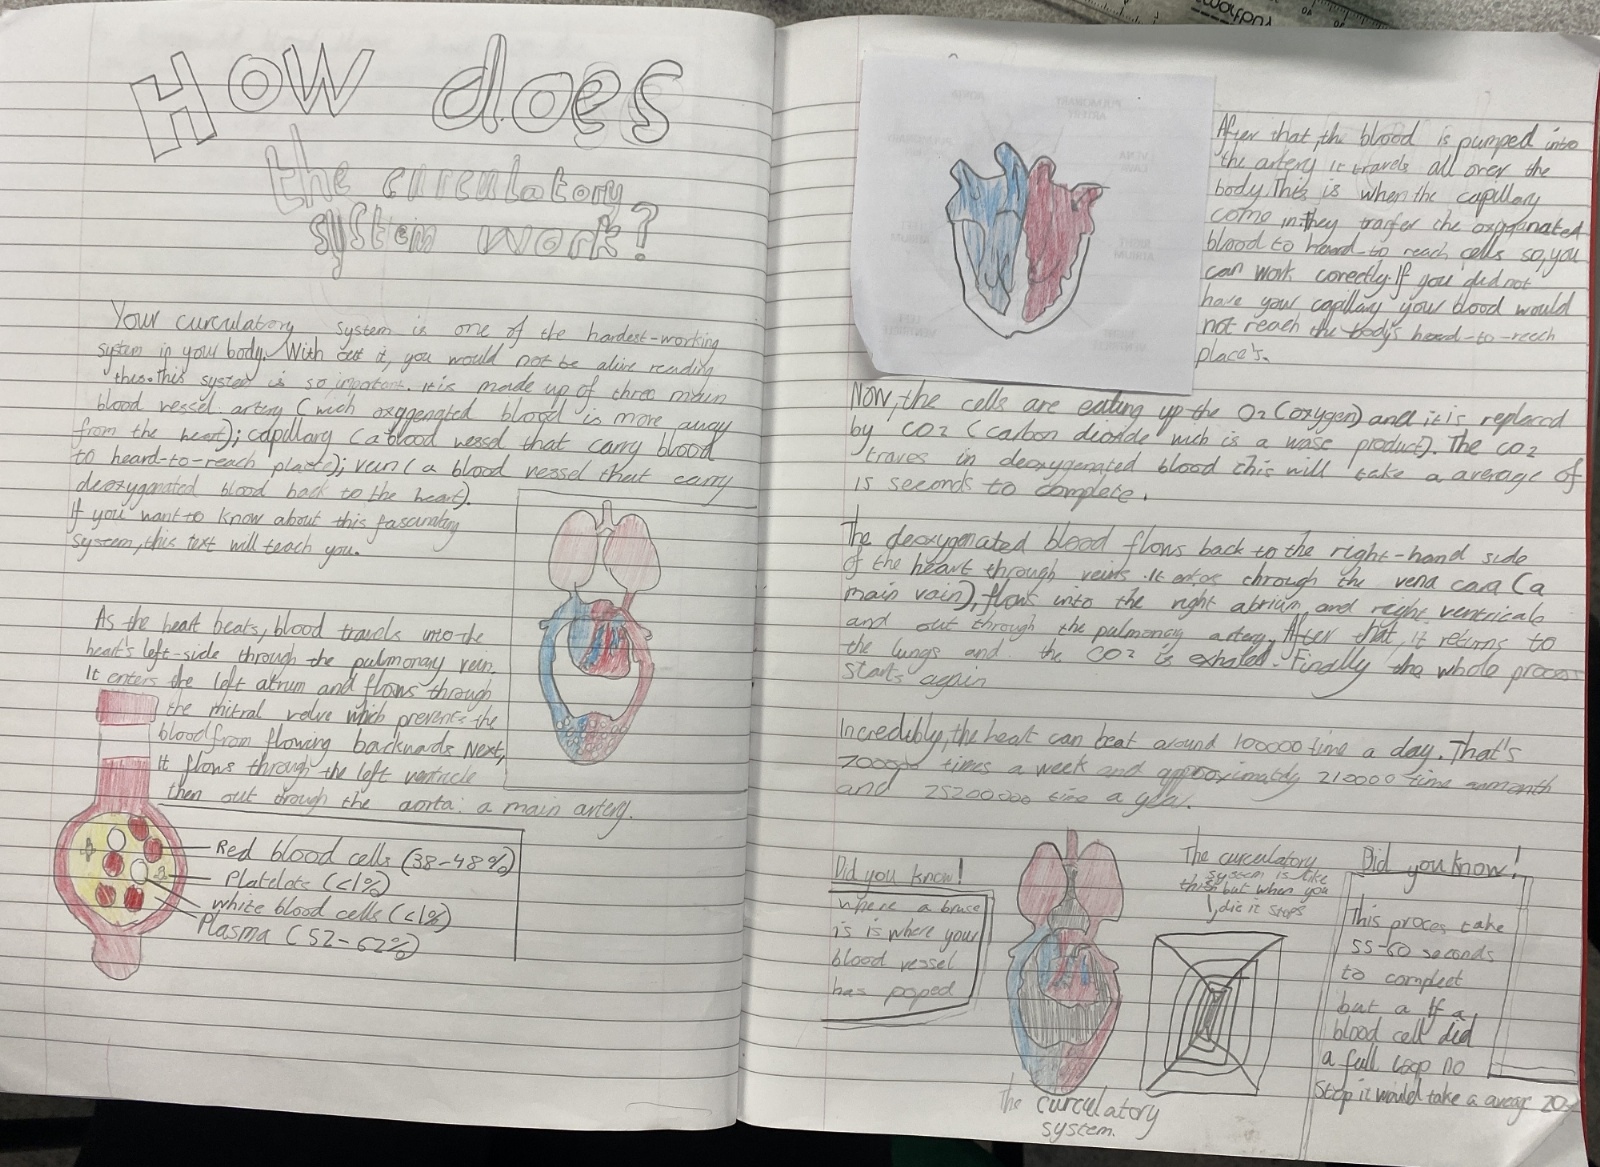 How does
the circulatory
system work?
Your curculatory system is one of the hardest-working
system in your body. With out it, you would not be alive reading
this. This system is so inportant. it is made up of three main
blood vessel artery (wich oxyggenated blood is more away
from the heart); capillary (a blood vessel that carry blood
to heard-to-reach plaste); vein (a blood vessel that carry
deoxyganated blood back to the heart).
If you want to know about this fascinating
system, this text will teach you.
As the heart beats, blood travels into the
heart's left-side through the pulmonary vein.
It enters the left atrium and flows through
the mitral valve which prevents the
blood from flowing backwards. Next,
it flows through the left ventricle
then out through the aorta: a main artery.
Red blood cells (38-48%)
Platelets (<1%)
white blood cells (<1%)
Plasma (52-62%)
After that, the blood is pumped into
the artery it travels all over the
body. This is when the capillary
come in. they tranfer the oxyganated
blood to heard-to reach cells so, you
can work corectly. If you did not
have your capillary your blood would
not reach the body's heard-to-reach
place's.
Now, the cells are eating up the O2 (oxygen) and it is replaced
by CO2 (carbon dioxide wich is a wase product). The CO2
traves in deoxygenated blood this will take a average of
15 seconds to complete.
The deoxygenated blood flows back to the right-hand side
of the heart through veins. It enters through the vena cava (a
main vain), flows into the right atrium, and right ventricals
and out through the pulmonary artery. After that, it returns to
the lungs and the CO2 is exhaled. Finally the whole process
starts again
Incredibly, the heart can beat around 100000 time a day. That's
700000 times a week and approximately 210000 time a month
and 25200000 time a year.
Did you know!
where a bruse
is is where your
blood vessel
has poped
The curculatory
system is like
this but when you
die it stops
The curculatory
system.
Did you know!
This proces take
55-60 seconds
to compleet
but a If a
blood cell did
a full loop no
stop it would take a averag 20